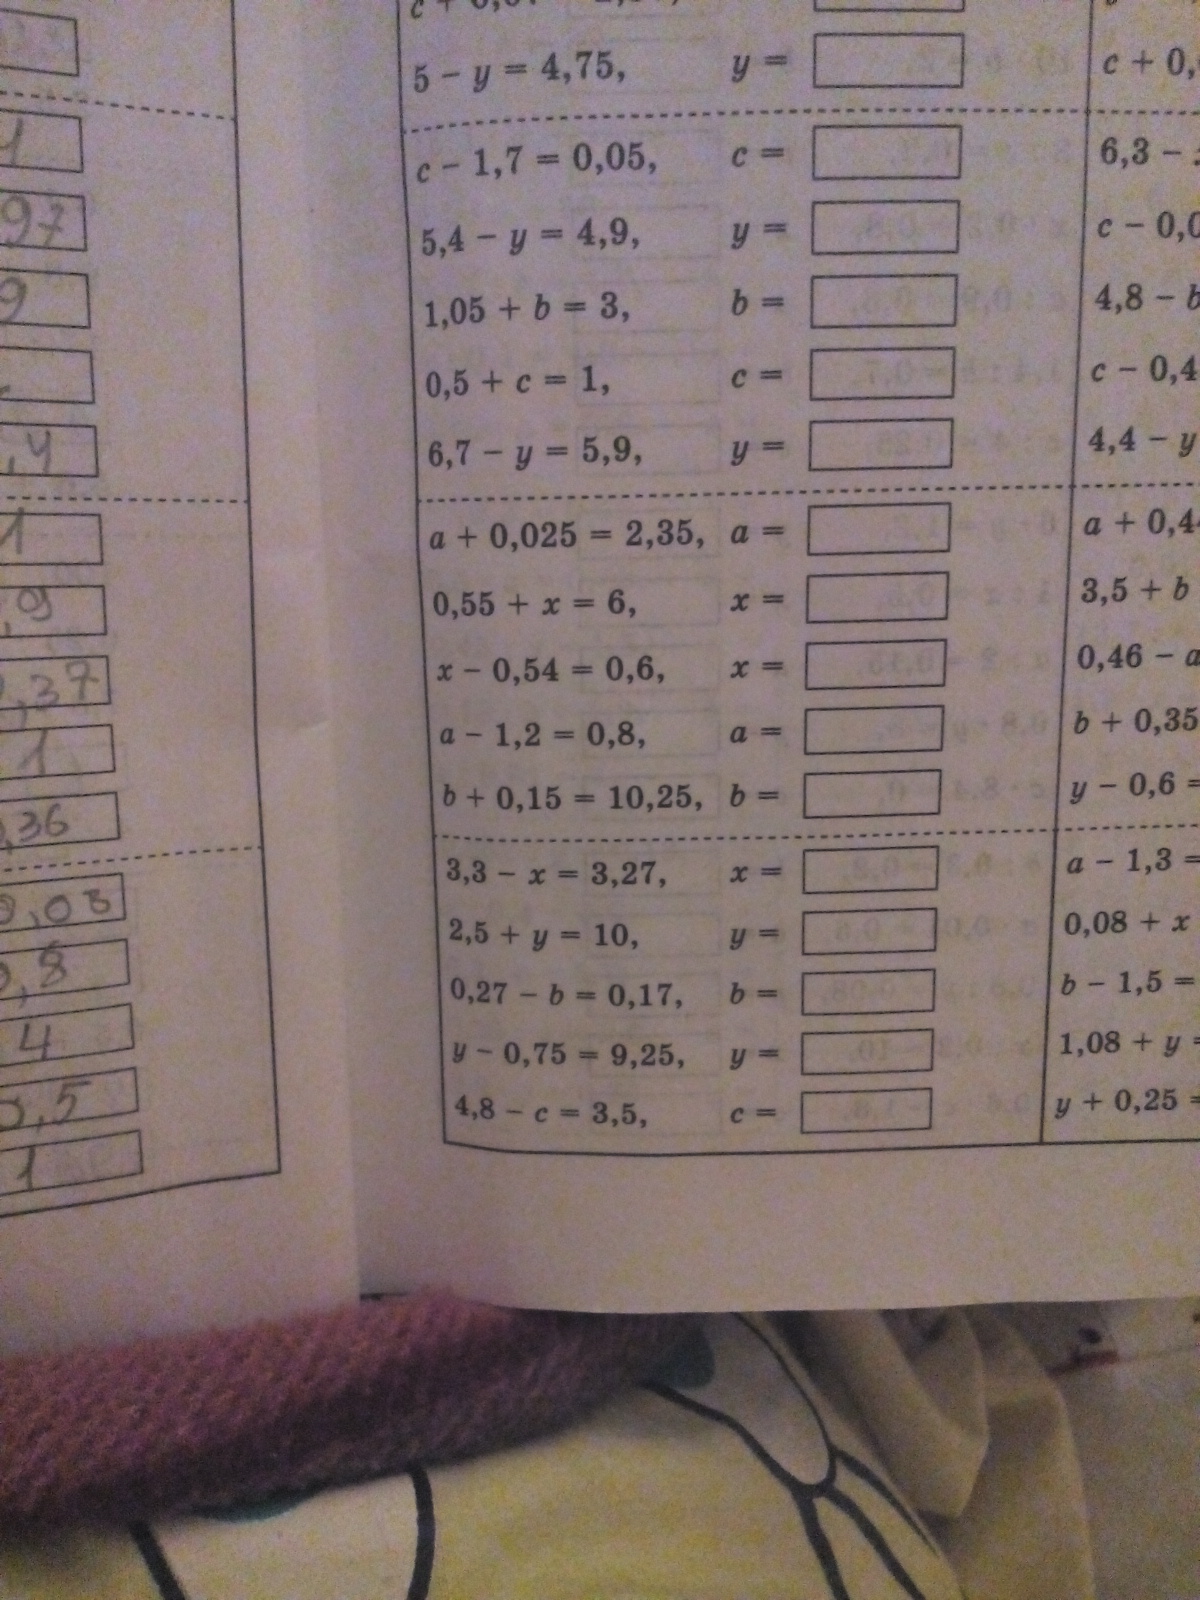 5 − y = 4,75, y =
c + 0,
c − 1,7 = 0,05, c =
6,3 −
5,4 − y = 4,9, y =
c − 0,0
1,05 + b = 3, b =
4,8 − b
0,5 + c = 1, c =
c − 0,4
6,7 − y = 5,9, y =
4,4 − y
a + 0,025 = 2,35, a =
a + 0,4
0,55 + x = 6, x =
3,5 + b
x − 0,54 = 0,6, x =
0,46 − a
a − 1,2 = 0,8, a =
b + 0,35
b + 0,15 = 10,25, b =
y − 0,6 =
3,3 − x = 3,27, x =
a − 1,3 =
2,5 + y = 10, y =
0,08 + x
0,27 − b = 0,17, b =
b − 1,5 =
y − 0,75 = 9,25, y =
1,08 + y =
4,8 − c = 3,5, c =
y + 0,25 =
97
9
,4
1
,9
,37
1
,36
0,03
0,8
4
0,5
1